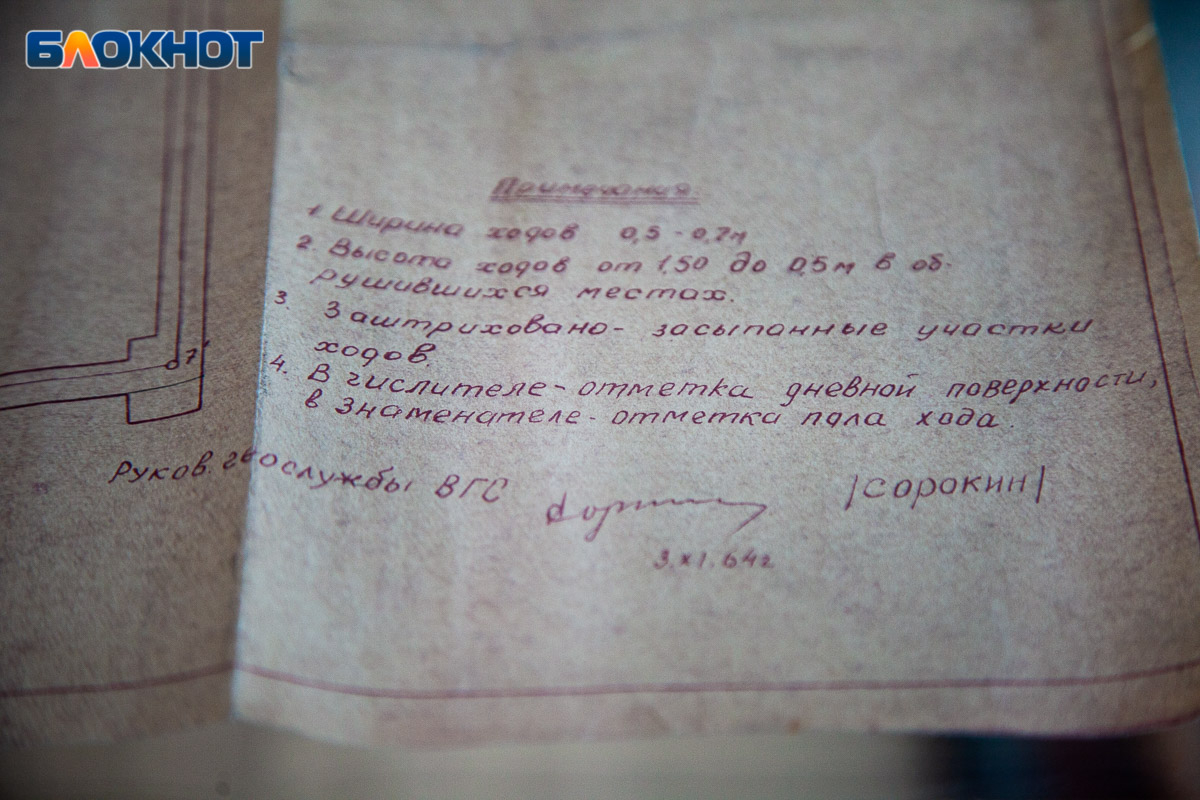 БЛОКНОТ
Примечания:
1. Ширина ходов 0,5 - 0,7м
2. Высота ходов от 1.50 до 0,5м в об-
рушившихся местах.
3. Заштриховано- засыпанные участки
ходов.
4. В числителе- отметка дневной поверхности,
в знаменателе- отметка пола хода.
7
Руков. геослужбы ВГС /Сорокин/
3.XI.64г